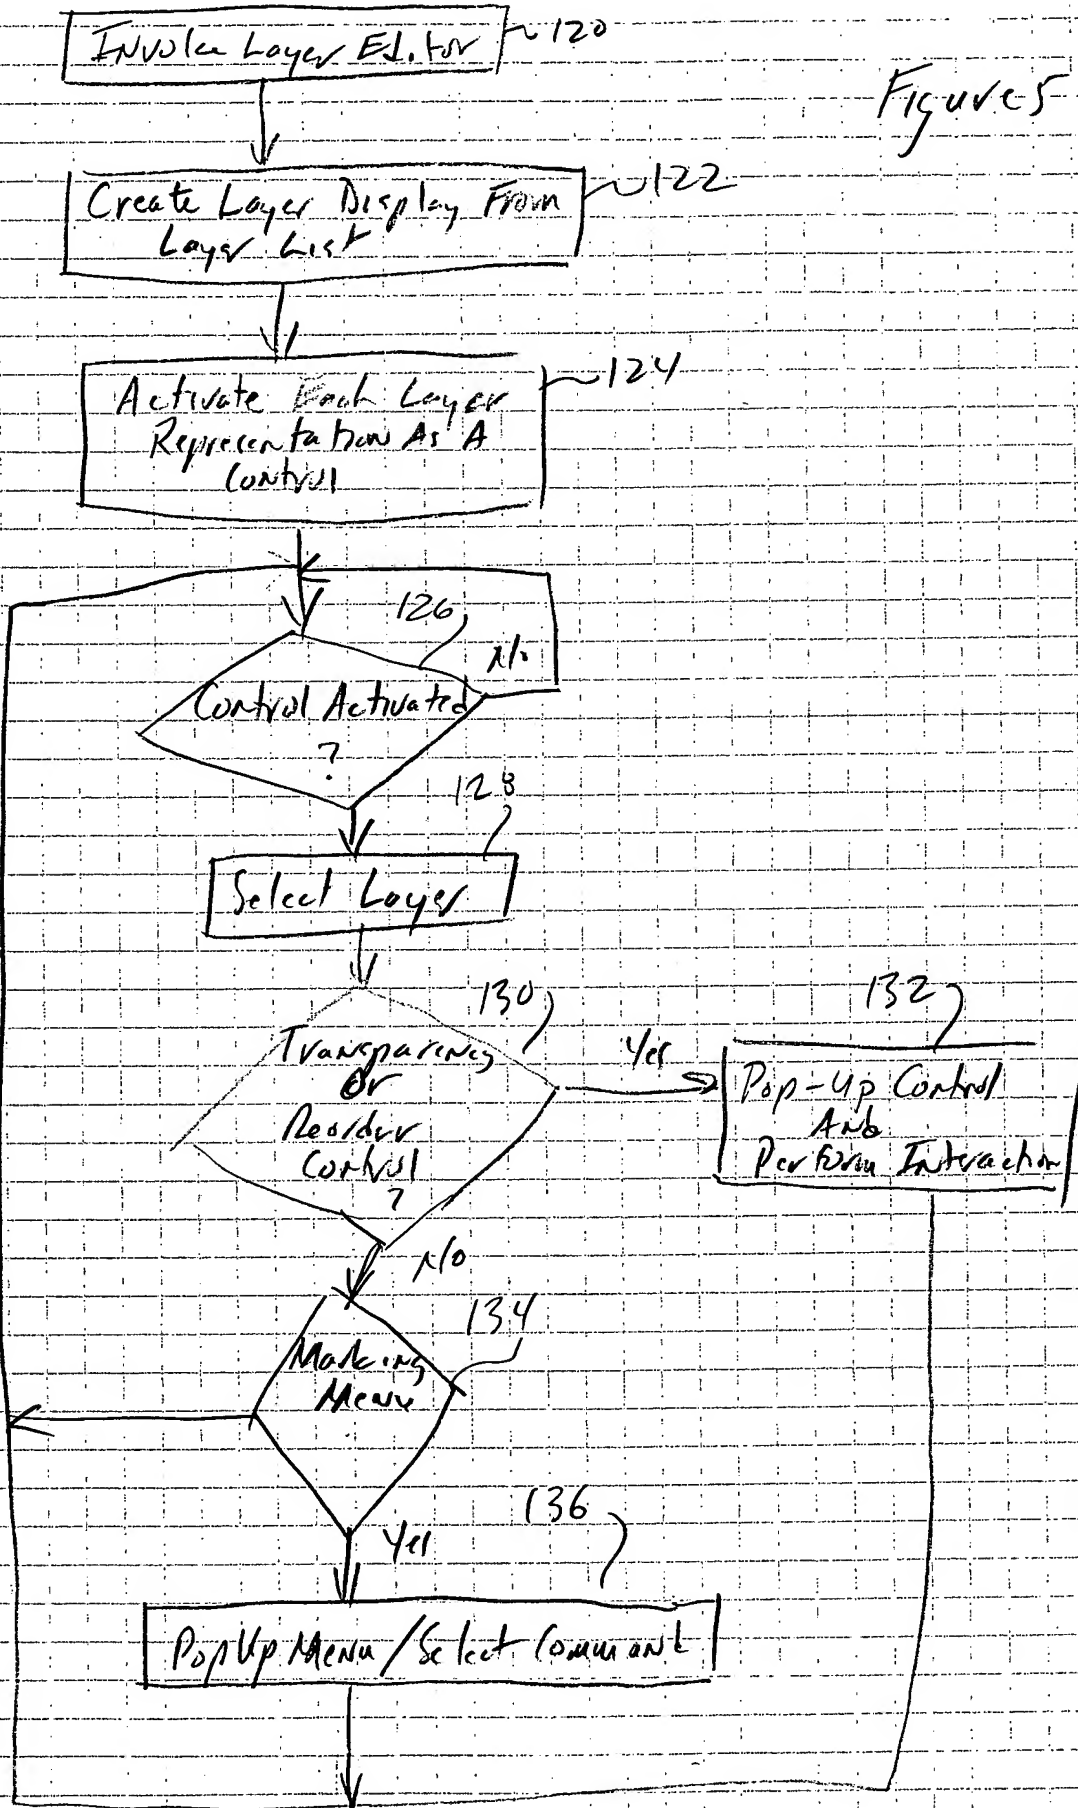 Invoke Layer Editor
120
Figure 5
Create Layer Display From
Layer List
122
Activate Each Layer
Representation As A
Control
124
126
No
Control Activated
?
128
Select Layer
130
Transparency
Or
Reorder
Control
?
Yes
132
Pop-Up Control
And
Perform Interaction
No
134
Marking
Menu
Yes
136
PopUp Menu/Select Command